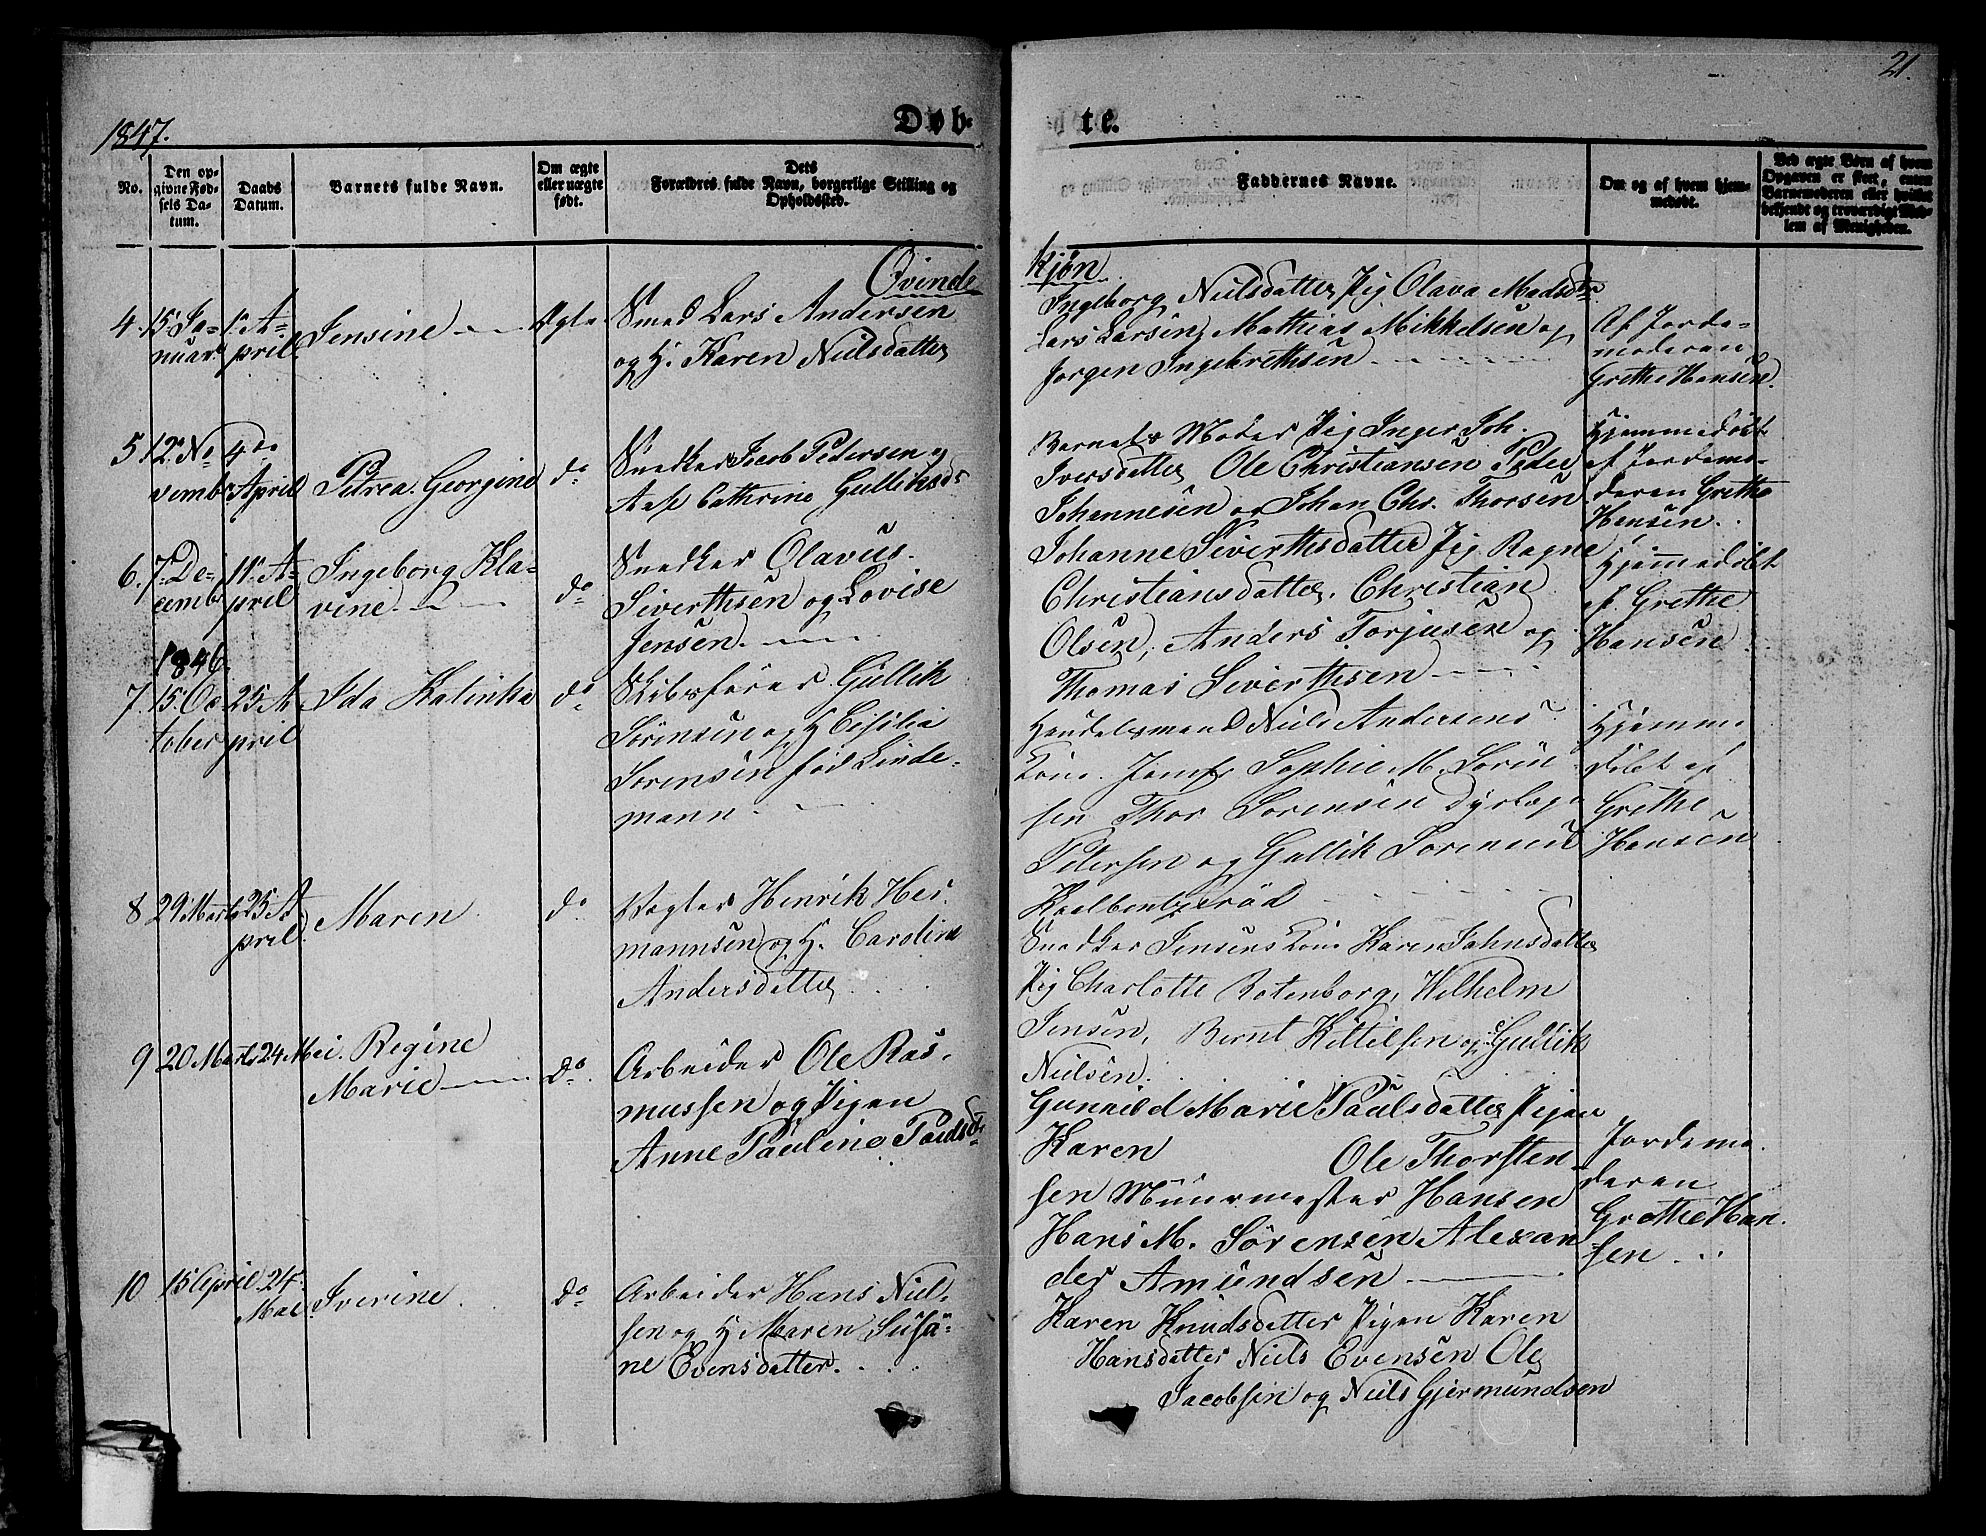 21.
1847.
Døb-
te.
No.
Den op-
givne Fød-
sels Da-
tum.
Daabs
Datum.
Barnets fulde Navn.
Om ægte
eller uægte
født.
Dets
Forældres fulde Navn, borgerlige Stilling og
Opholdssted.
Faddernes Navne.
Om og af hvem hjem-
medøbt.
Ved ægte Børn af hvem
Opgaven er skeet, enten
Barnemoderen eller hvilket
bekjendt og troværdigt Med-
lem af Menigheden.
Qvinde
kjøn
4. 15 Ja-
nuar.
1. A-
pril
Jensine
Ægte
Smed Lars Andersen
og H. Karen Nielsdatter
Ingeborg Nielsdatter, Pig Olava Madsdtr
Lars Larsen, Mathias Mikkelsen og
Jørgen Ingebrethsen
Af Jorde-
moderen
Grethe Hansen.
5 12 No
vembr
4de
April
Petrea Georgine
do
Snedker Jacob Pedersen og
Cathrine Gulliksdr
Barnets Moder Pig Inger Joh.
Iversdatter Ole Christiansen Peder
Johannesen og Johan Chr. Thorsen
Hjemmedøbt
af Jordemo-
deren Grethe
Hansen.
6. 7 De-
cembr
1846.
11 A-
pril
Ingeborg Kla-
vine
do
Snedker Olavus
Siverthsen og Lovise
Jensen.
Johanne Siverthsdatter Pig Ragne
Christiansdatter, Christian
Olsen, Anders Torjusen og
Thomas Siverthsen
Hjemmedøbt
af Grethe
Hansen
7. 15 Oc
tober
25 A
pril
Ida Kalinka
do
Skibsfører Gullik
Sørensen og H Cisilia
Sørensen fød Linde-
mann
Handelsmand Niels Andersens
Kone. Jomf. Sophie M. Sørin
sen Thor Sørensen Dyrlæge
Petersen og Gullik Sørensen
Hjemme
døbt af
Grethe
Hansen
8 29 Marts
25 A
pril
Maren
do
Vægter Henrik Her
mannsen og H. Caroline
Andersdatter
Snedker Jensens Kone Karen Jahnsdatter
Pig Charlotte Rotenborg, Wilhelm
Jensen, Bernt Kittilsen og Gullik
Nielsen.
9 20 Marts
24 Mai.
Regine
Marie
do
Arbeider Ole Ras-
mussen og Pigen
Anne Pauline Paulsdr
Gunnild Marie Paulsdatter Pigen
Karen Ole Thorsten
sen Muurmester Hansen
Hans M. Sørensen Alexan
der Amundsen
Jordemo
deren
Grethe Han
sen
10 15 April
24
Mai
Iverine
do
Arbeider Hans Niel-
sen og H Maren Susa-
ne Evensdatter.
Karen Knudsdatter Pigen Karen
Hansdatter Niels Evensen Ole
Jacobsen og Niels Gjermundsen